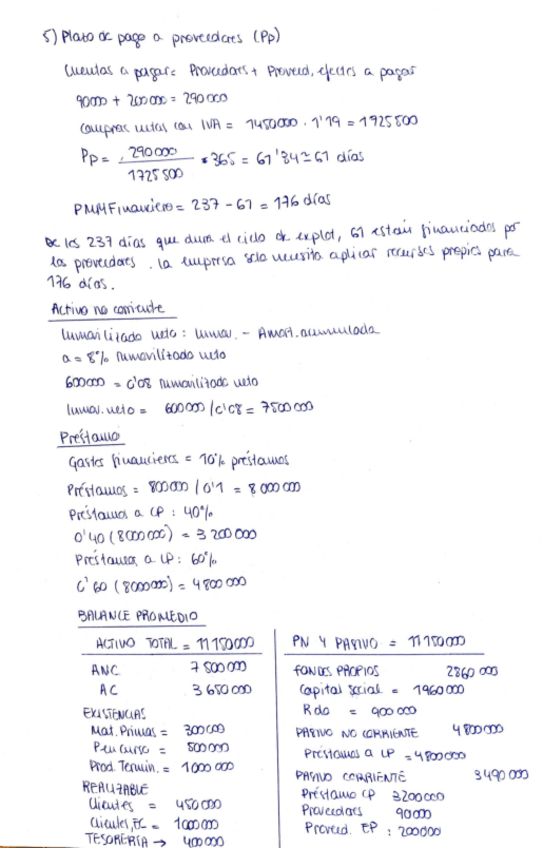 5) Plazo de pago a proveedores (Pp)
Cuentas a pagar = Proveedores + Proveed, efectos a pagar
90000 + 200000 = 290000
Compras netas con IVA = 1450000 · 1'19 = 1725500
Pp = 290000 / 1725500 * 365 = 61'34 ≃ 61 días
PMMFinanciero = 237 - 61 = 176 días
De los 237 días que dura el ciclo de explot, 61 están financiados por
los proveedores. La empresa solo necesita aplicar recursos propios para
176 días.
Activo no corriente
Inmovilizado neto: Inmov. - Amort. acumulada
a = 8% Inmovilizado neto
600000 = 0'08 Inmovilizado neto
Inmov. neto = 600000 / 0'08 = 7500000
Préstamo
Gastos financieros = 10% préstamos
Préstamos = 800000 / 0'1 = 8000000
Préstamos a CP: 40%
0'40 (8000000) = 3200000
Préstamos a LP: 60%
0'60 (8000000) = 4800000
BALANCE PROMEDIO
ACTIVO TOTAL = 11150000
ANC 7500000
AC 3650000
EXISTENCIAS
Mat. Primas = 300000
P en curso = 500000
Prod. Termin. = 1000000
REALIZABLE
Clientes = 450000
Clientes, EC = 1000000
TESORERÍA → 400000
PN Y PASIVO = 11150000
FONDOS PROPIOS 2860000
Capital social = 1960000
Rdo = 900000
PASIVO NO CORRIENTE 4800000
Préstamos a LP = 4800000
PASIVO CORRIENTE 3490000
Préstamo CP 3200000
Proveedores 90000
Proveed. EP: 200000